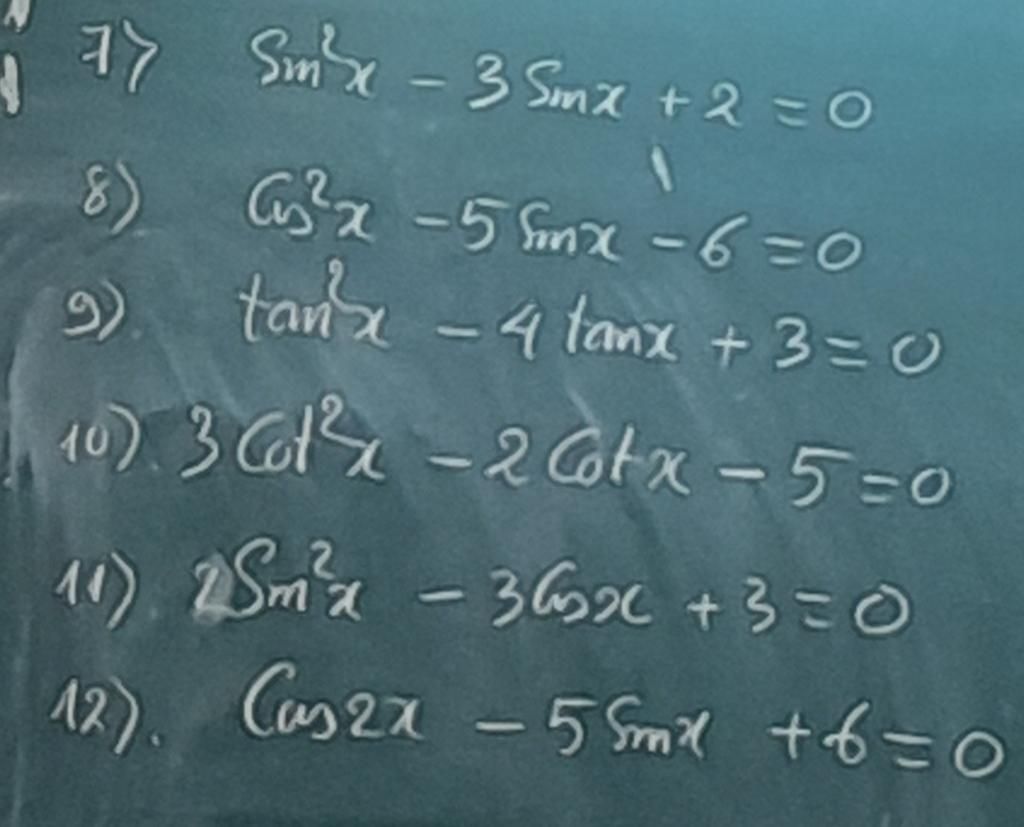 7) Sin²x - 3 Sinx + 2 = 0
8) Cos²x - 5 Sinx - 6 = 0
9) tan²x - 4 tanx + 3 = 0
10) 3 Cot²x - 2 Cotx - 5 = 0
11) 2Sin²x - 3Cosx + 3 = 0
12). Cos2x - 5 Sinx + 6 = 0